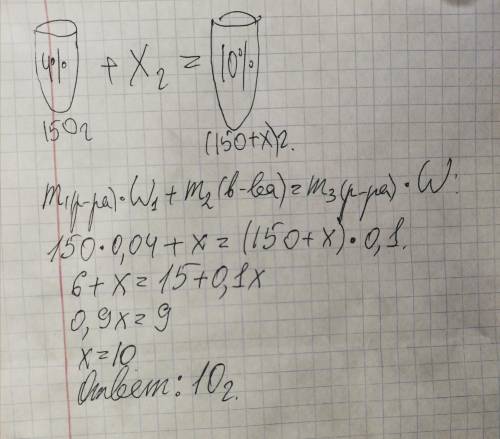 4% + X г = 10%
150г
(150+x)г.
m₁(р-ра)·W₁+m₂(в-ва)=m₃(р-ра)·W.
150·0,04+x=(150+x)·0,1.
6+x=15+0,1x
0,9x=9
x=10
Ответ: 10г.